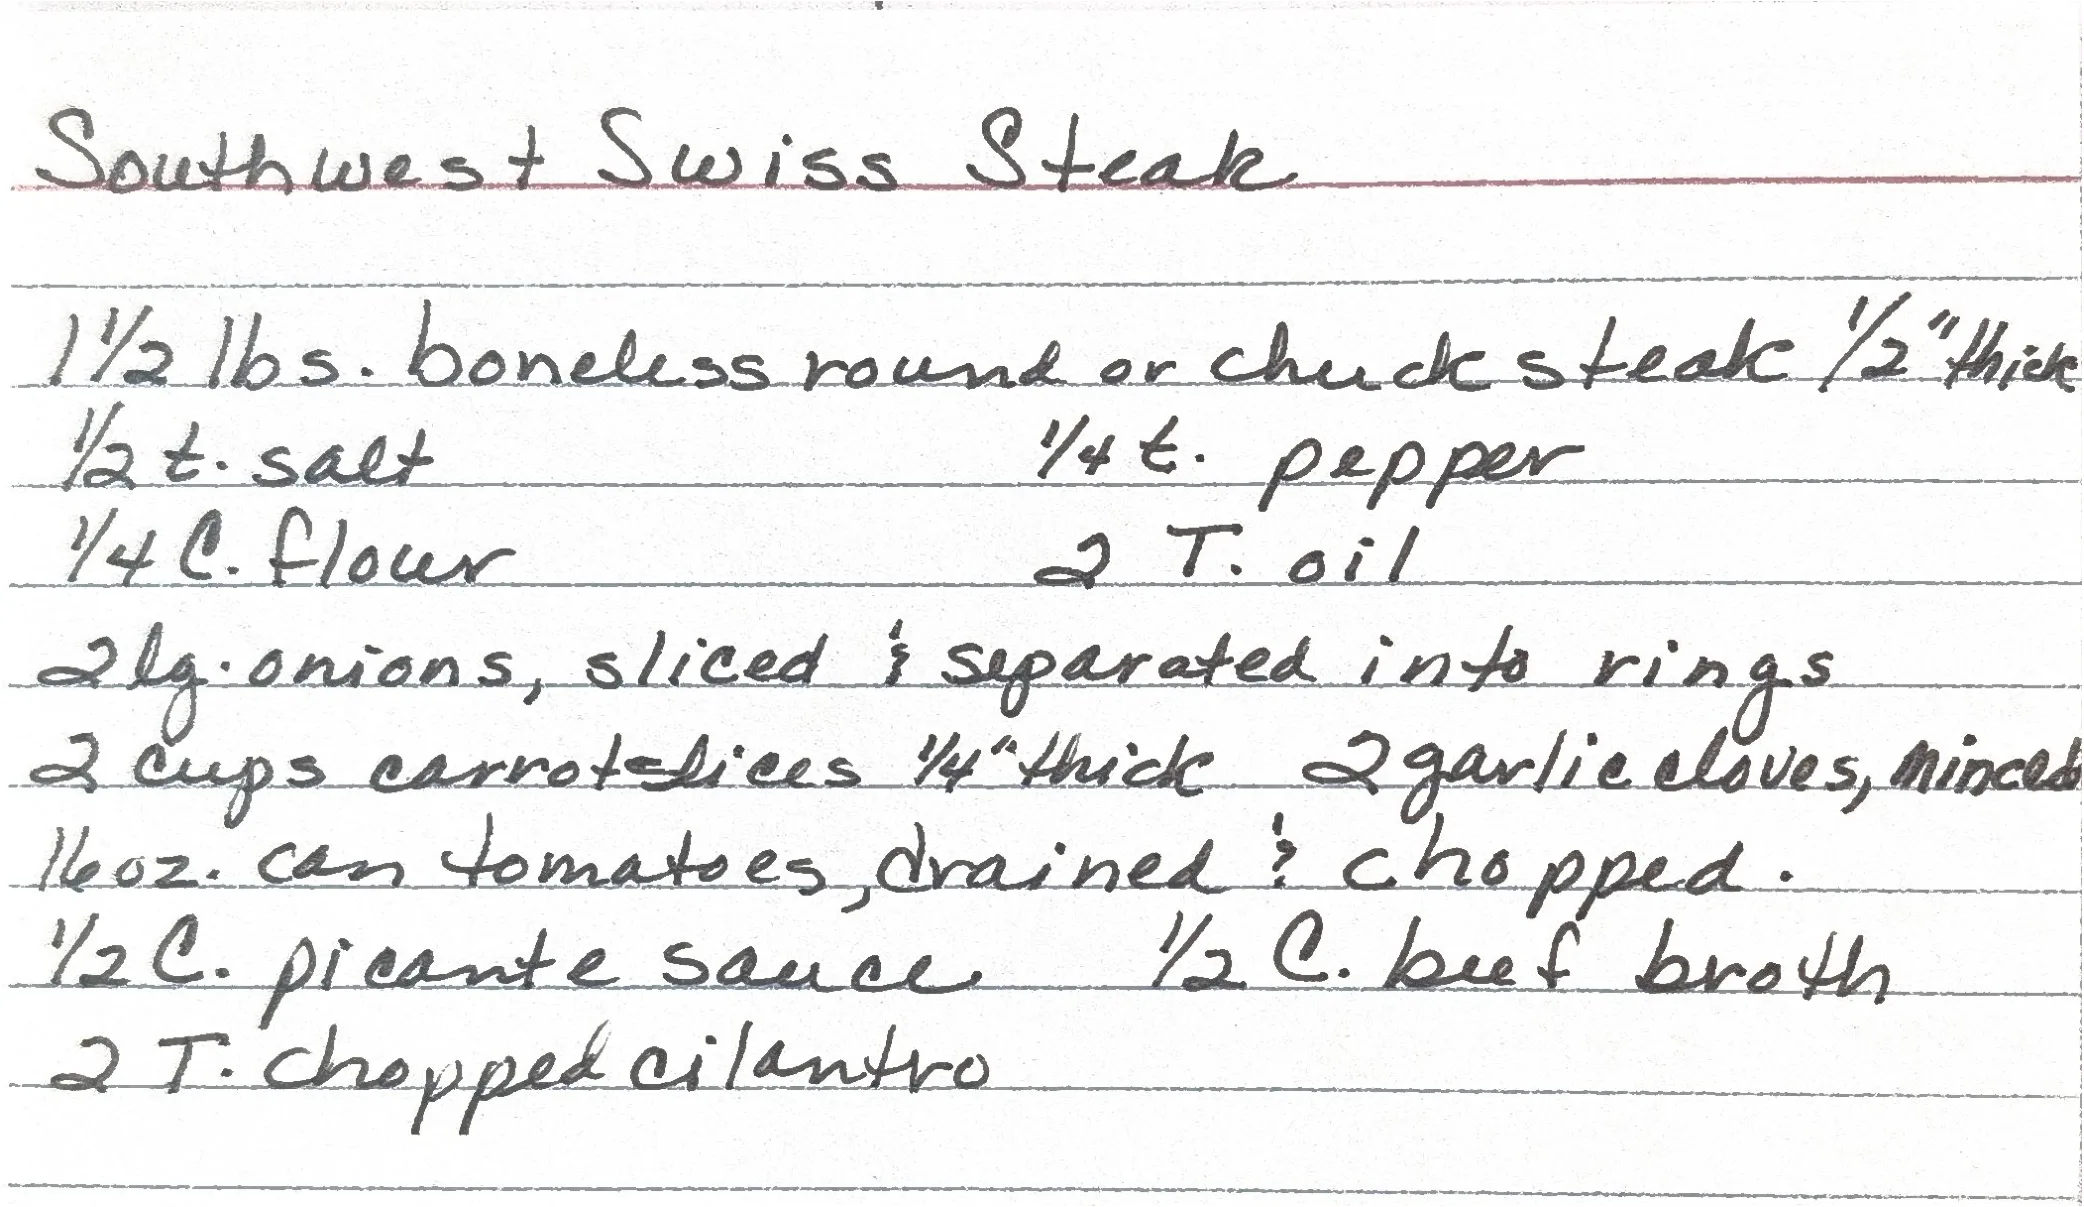 Southwest Swiss Steak
1 1/2 lbs. boneless round or chuck steak 1/2" thick
1/2 t. salt 1/4 t. pepper
1/4 C. flour 2 T. oil
2 lg. onions, sliced & separated into rings
2 cups carrot slices 1/4" thick 2 garlic cloves, minced
16 oz. can tomatoes, drained & chopped.
1/2 C. picante sauce 1/2 C. beef broth
2 T. chopped cilantro